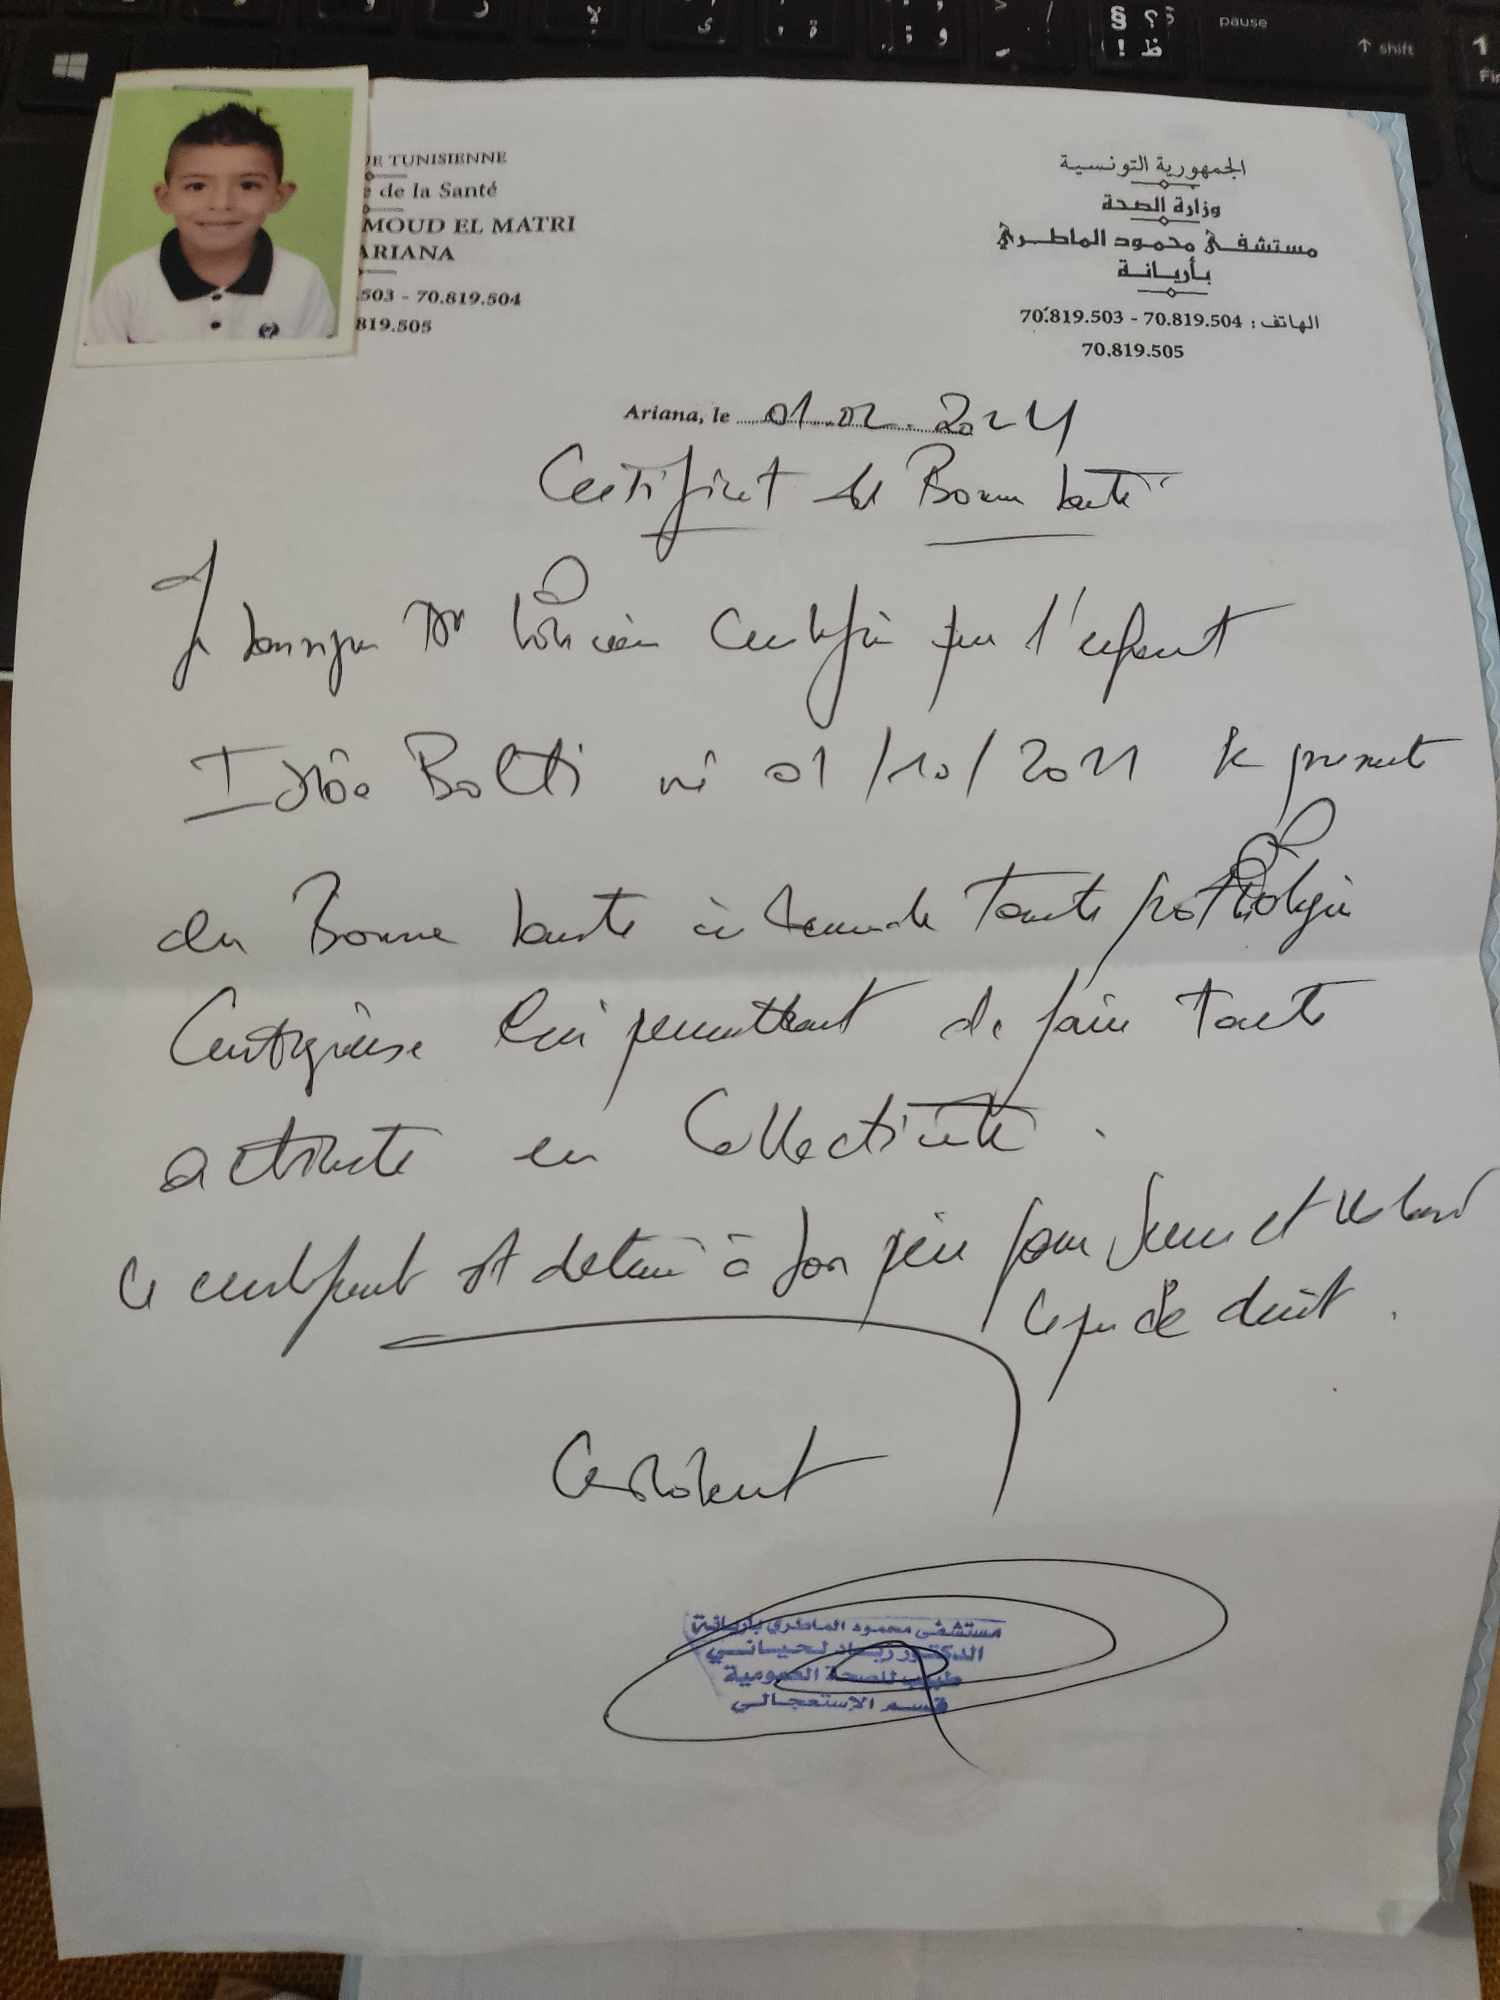 UE TUNISIENNE
e de la Santé
MOUD EL MATRI
ARIANA
.503 - 70.819.504
819.505
الجمهورية التونسية
وزارة الصحة
مستشفى محمود الماطري
بأريانة
الهاتف : 70.819.503 - 70.819.504
70.819.505
Ariana, le 01.02.2024
Certificat de Bonne santé
Je soussigné Dr certifie que l'enfant
Balti né 01/10/2011 se présente
en Bonne santé toute pathologie
Contagieuse lui permettant de faire toute
activité en Collectivité.
Ce certificat est délivré à son père pour servir et valoir
ce que de droit.
مستشفى محمود الماطري بأريانة
الدكتور زياد لحياني
طبيب للصحة العمومية
قسم الإستعجالي
pause
shift